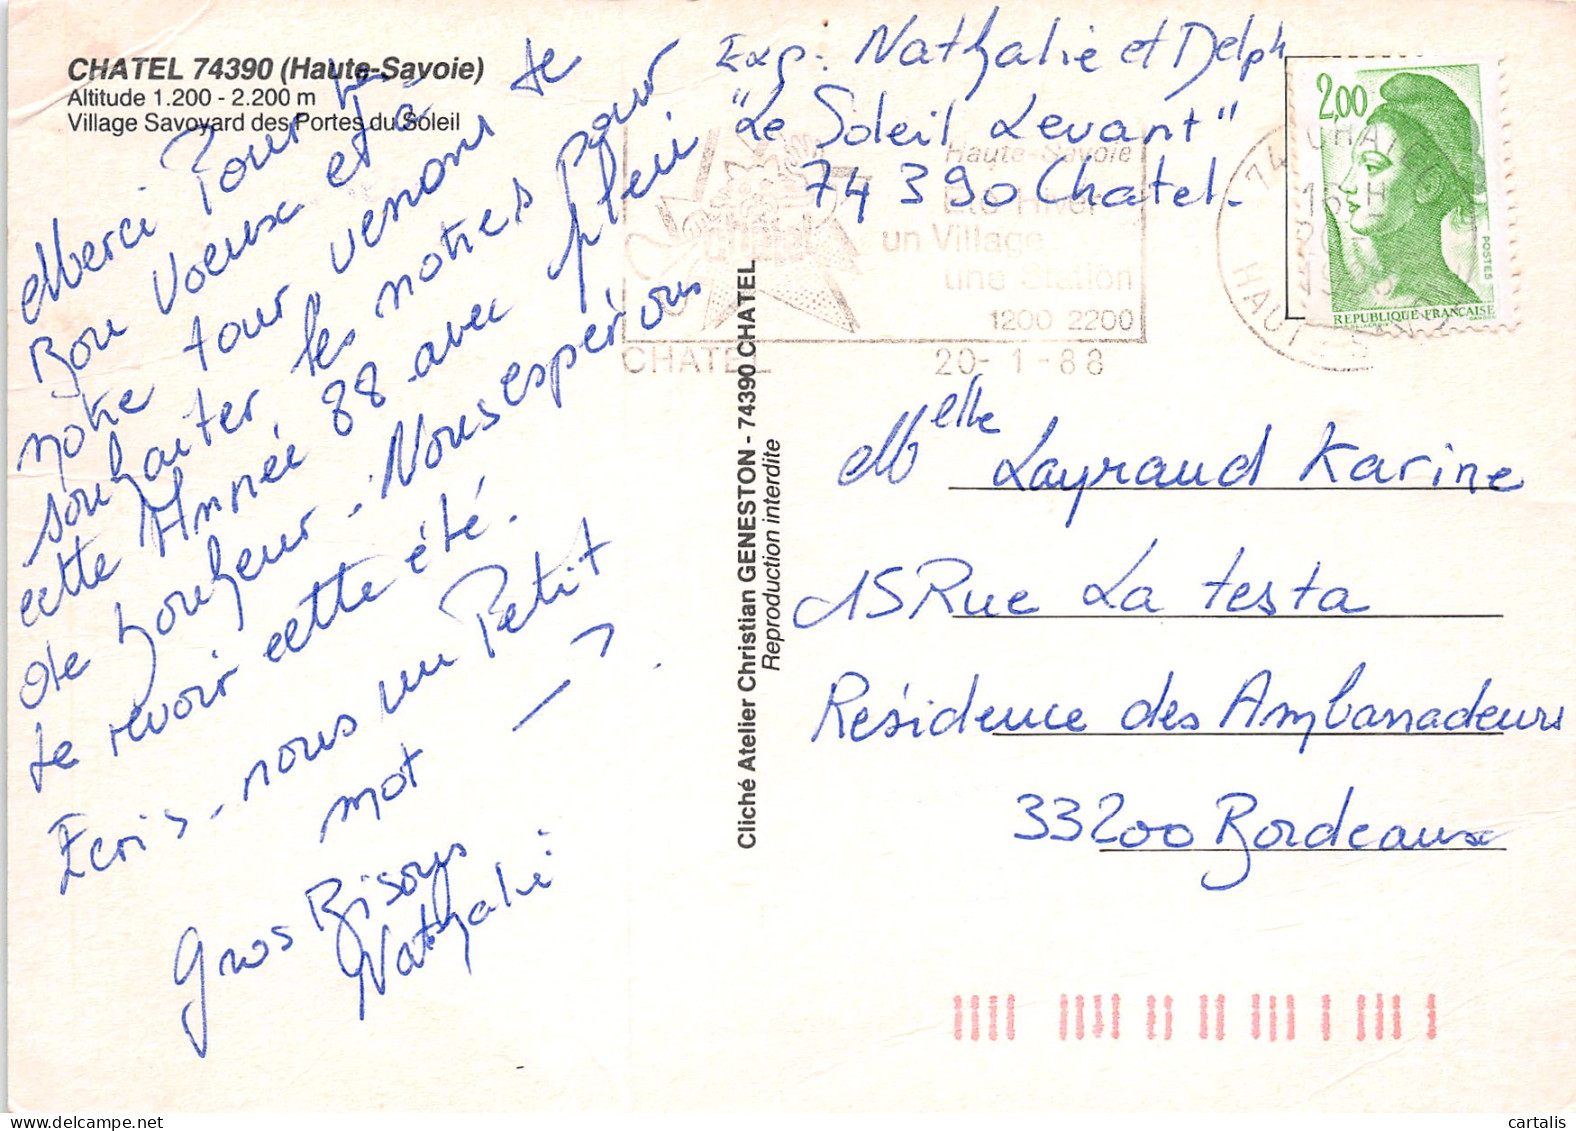 CHATEL 74390 (Haute-Savoie)
Altitude 1.200 - 2.200 m
Village Savoyard des Portes du Soleil
Merci Pour les
Bon Voeux et a
notre tour venons te
souhaiter les notres Pour
cette Année 88 avec plein
de bonheur. Nous espérons
te revoir cette été.
Ecris-nous un Petit
mot
Gros Bisous
Nathalie
Cliché Atelier Christian GENESTON - 74390 CHATEL
Reproduction interdite
Exp: Nathalie et Delph
"Le Soleil Levant"
74390 Chatel.
Haute-Savoie
Eté-Hiver
un Village
une Station
1200 2200
CHATEL 20-1-88
74 CHATEL
16 H
HAUTE-S
2,00
POSTES
REPUBLIQUE FRANÇAISE
Melle Layraud Karine
15 Rue La testa
Résidence des Ambassadeurs
33200 Bordeaux
cartalis